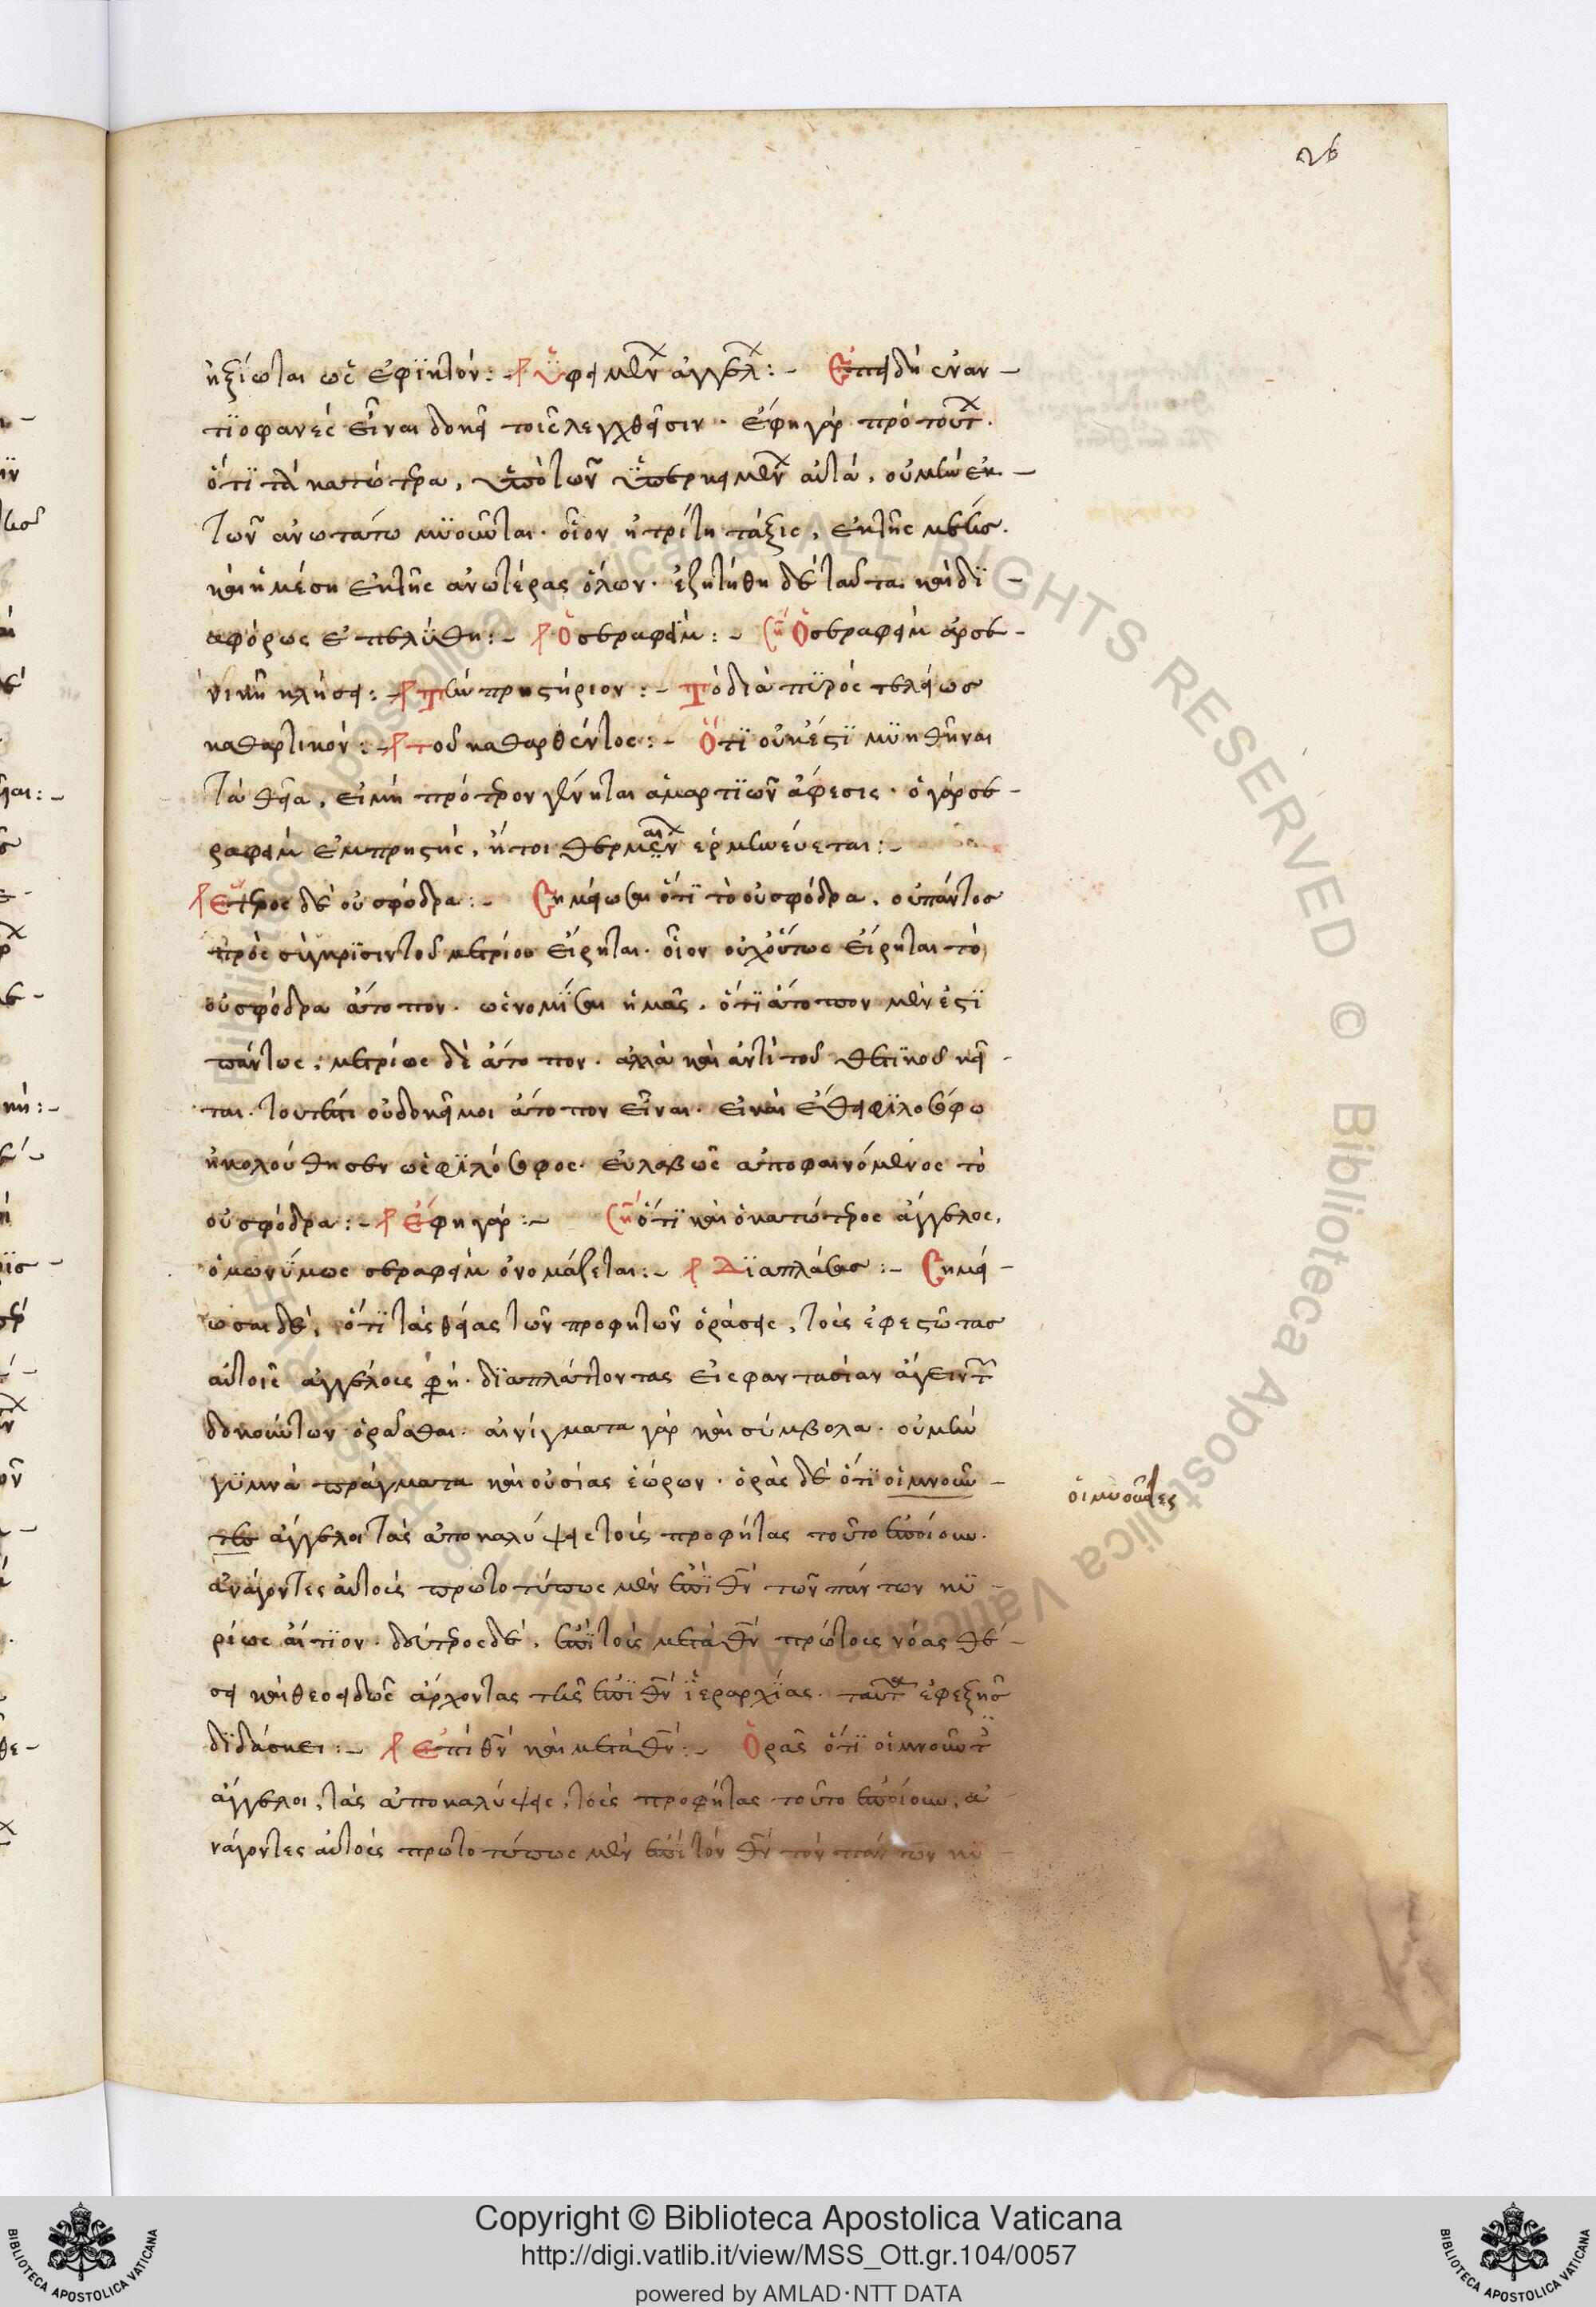 26
ἠξίωται ὡς ἐφικτόν: Ὑφειμεν ἀγγελ: Ἐπειδὴ ἐναν-
τιοφανὲς εἶναι δοκεῖ τοῖς λεχθεῖσιν. ἔφη γὰρ πρὸ τουτ.
ὅτι τὰ κατώτερα, ὑπὸ τῶν ὑπερκειμεν αὐτά, οὐ μὴν ἐκ
τῶν ἀνωτάτω μυοῦνται. οἷον ἡ τρίτη τάξις, ἐκ τῆς μέσης.
καὶ ἡ μέση ἐκ τῆς ἀνωτέρας ὅλων. ἐζητήθη δὲ ταῦτα καὶ δι-
αφόρως ἐπελύθη: Ὁ σεραφείμ: Ση Ὁ σεραφείμ ἀρσε-
νικῇ κλήσει: Τὴν πρηστήριον: Τὸ διὰ πυρὸς τελείως
καθαρτικόν: τοῦ καθαρθέντος: Ὅτι οὐκ ἔστι μυηθῆναι
τὰ θεῖα, εἰ μὴ πρότερον γένηται ἁμαρτιῶν ἄφεσις. ὁ γὰρ σε-
ραφεὶμ ἐμπρηστὴς, ἤτοι θερμαιν ἑρμηνεύεται:
Ἕτερος δὲ οὐ σφόδρα: Σημείωσαι ὅτι τὸ οὐ σφόδρα, οὐ πάντως
πρὸς σύγκρισιν τοῦ μετρίου εἴρηται. οἷον οὐχ οὕτως εἴρηται τὸ
οὐ σφόδρα ἄτοπον. ὡς νομίσαι ἡμᾶς. ὅτι ἄτοπον μέν ἐστι
πάντως, μετρίως δὲ ἄτοπον. ἀλλὰ καὶ ἀντὶ τοῦ θετικοῦ κεῖ-
ται. τουτέστι οὐ δοκεῖ μοι ἄτοπον εἶναι. εἰ καὶ ἔθει φιλοσόφω
ἠκολούθησεν ὡς φιλόσοφος. εὐλαβῶς ἀποφαινόμενος τὸ
οὐ σφόδρα: Ἔφη γάρ: Ση ὅτι καὶ ὁ κατώτερος ἄγγελος,
ὁμωνύμως σεραφεὶμ ὀνομάζεται: Διαπλάσας: Σημεί-
ωσαι δὲ, ὅτι τὰς θείας τῶν προφητῶν ὁράσεις, τοὺς ἐφεστῶτας
αὐτοῖς ἀγγέλους φησί. διαπλάττοντας εἰς φαντασίαν ἄγειν τ
δοκούντων ὁρᾶσθαι. αἰνίγματα γὰρ καὶ σύμβολα. οὐ μὴν
γυμνὰ πράγματα καὶ οὐσίας ἑώρων. ὁρᾷς δὲ ὅτι οἱ μνοῦν-
τες ἄγγελοι τὰς ἀποκαλύψεις τοὺς προφήτας τοῦτο ἐποίουν.
οἱ μυοῦντες
ἀνάγοντες αὐτοὺς πρωτοτύπως μὲν ἐπὶ θν τῶν πάντων κυ-
ρίως αἴτιον. δεύτερος δὲ, ἐπὶ τοὺς μετὰ θν πρώτους νόας θέ-
σει καὶ θεοειδῶς ἄρχοντας τῆς ἐπὶ θν ἱεραρχίας. ταυτ ἐφεξῆς
διδάσκει: Ἐπὶ θν καὶ μετὰ θν: Ὁρᾷς ὅτι οἱ μνοῦντ
ἄγγελοι, τὰς ἀποκαλύψεις, τοὺς προφήτας τοῦτο ἐποίουν, ἀ-
νάγοντες αὐτοὺς πρωτοτύπως μὲν ἐπὶ τὸν θν τὸν πάντων κυ-
Copyright © Biblioteca Apostolica Vaticana
http://digi.vatlib.it/view/MSS_Ott.gr.104/0057
powered by AMLAD·NTT DATA